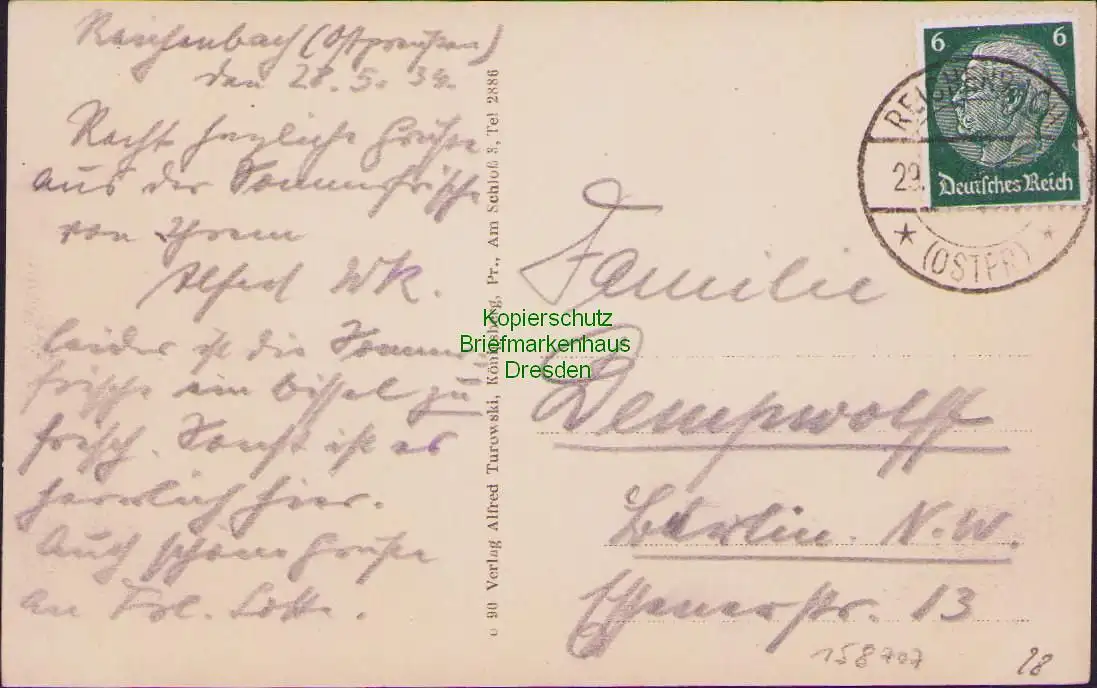 Reichenbach (Ostpreußen)
den 28. 5. 34.
Recht herzliche Grüße
aus der Sommerfrische
von Ihrem
Alfred
leider ist die Sommer-
frische ein bissel zu
frisch. Sonst ist es
herrlich hier.
Auch schöne Grüße
an Frl. Lotte.
c 90 Verlag Alfred Turowski, Königsberg, Pr., Am Schloß 3, Tel 2886
6 6
Deutsches Reich
REICHENBACH
29.
(OSTPR)
Familie
Dempwolff
Berlin. N.W.
13
158707
28
Kopierschutz
Briefmarkenhaus
Dresden